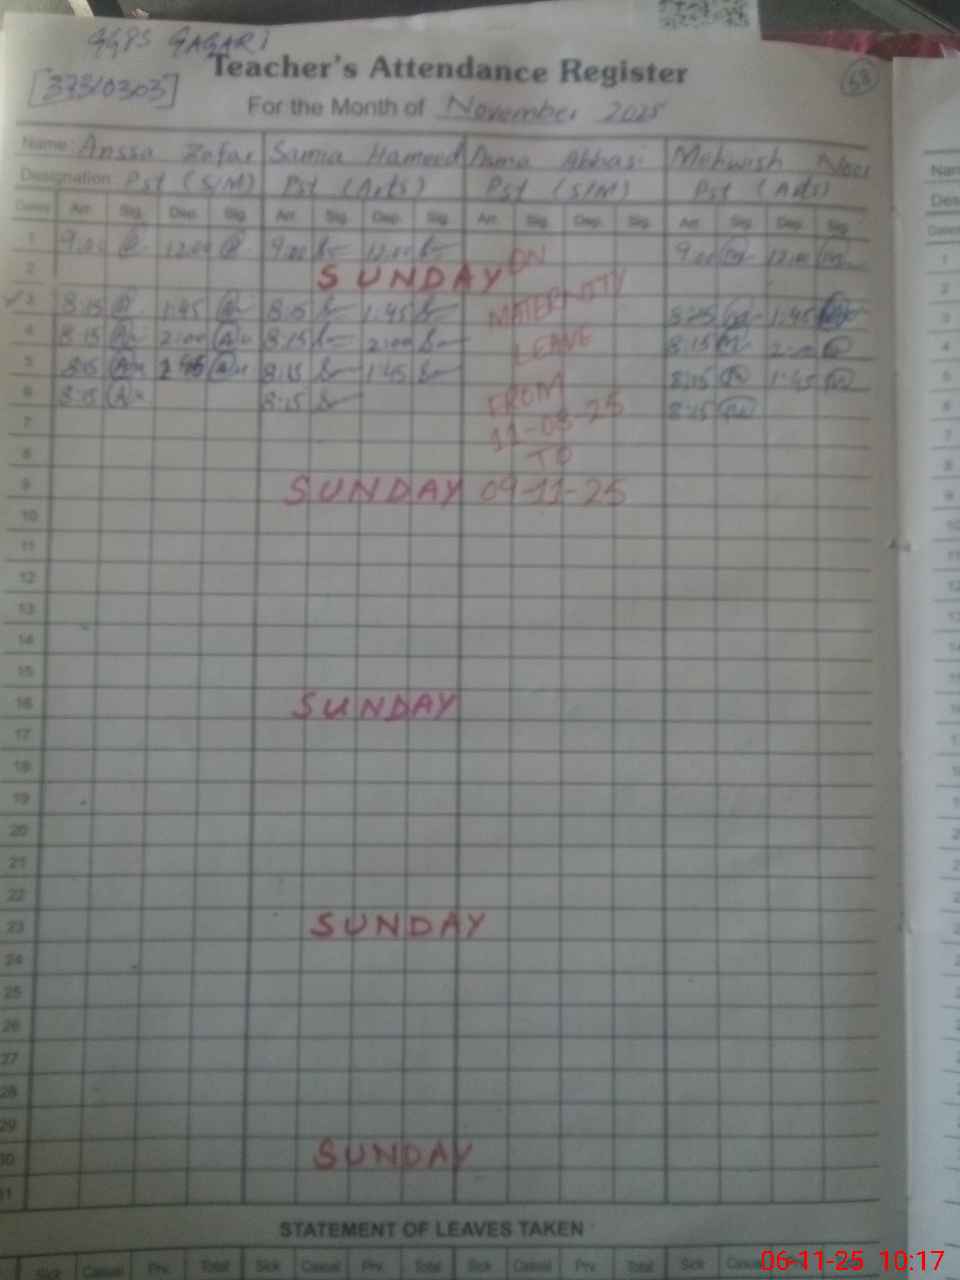 GGPS GAGARI
Teacher's Attendance Register
[37310303]
68
For the Month of November 2025
Name: Anssa Zafar Samia Hameed Asma Abbasi Mehwish Noor
Designation: Pst (S/M) Pst (Arts) Pst (S/M) Pst (Arts)
Dates Arr. Sig. Dep. Sig. Arr. Sig. Dep. Sig. Arr. Sig. Dep. Sig. Arr. Sig. Dep. Sig.
1 9:00 12:00 9:00 12:00 ON 9:00 12:00
2 SUNDAY
3 8:15 1:45 8:15 1:45 MATERNITY 8:15 1:45
4 8:15 2:00 8:15 2:00 LEAVE 8:15 2:00
5 8:15 1:45 8:15 1:45 8:15 1:45
6 8:15 8:15 FROM 8:15
7 11-08-25
8 TO
9 SUNDAY 09-11-25
10
11
12
13
14
15
16 SUNDAY
17
18
19
20
21
22
23 SUNDAY
24
25
26
27
28
29
30 SUNDAY
31
STATEMENT OF LEAVES TAKEN
Sick Casual Prv. Total Sick Casual Prv. Total Sick Casual Prv. Total Sick Casual Prv.
06-11-25 10:17